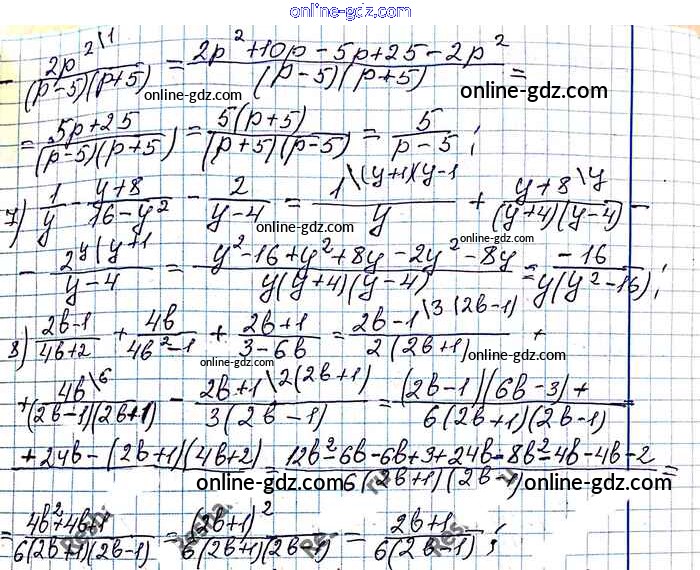 online-gdz.com
- 2p²\1/((p-5)(p+5)) = (2p²+10p-5p+25-2p²)/((p-5)(p+5)) =
online-gdz.com online-gdz.com
= (5p+25)/((p-5)(p+5)) = 5(p+5)/((p+5)(p-5)) = 5/(p-5);
online-gdz.com online-gdz.com
7) 1/y - (y+8)/(16-y²) - 2/(y-4) = 1\(y+1)(y-1/y + y+8\y/((y+4)(y-4)) -
online-gdz.com online-gdz.com
- 2y(y+1/(y-4) = (y²-16+y²+8y-2y²-8y)/(y(y+4)(y-4)) = -16/(y(y²-16));
online-gdz.com
8) (2b-1)/(4b+2) + 4b/(4b²-1) + (2b+1)/(3-6b) = 2b-1\3(2b-1)/(2(2b+1)) +
online-gdz.com online-gdz.com
+ 4b\6/((2b-1)(2b+1)) - 2b+1\2(2b+1)/(3(2b-1)) = ((2b-1)(6b-3)+
online-gdz.com 6(2b+1)(2b-1)
+24b-(2b+1)(4b+2) = (12b²-6b-6b+3+24b-8b²-4b-4b-2)/(6(2b+1)(2b-1)) =
online-gdz.com online-gdz.com
= (4b²+4b+1)/(6(2b+1)(2b-1)) = (2b+1)²/(6(2b+1)(2b-1)) = (2b+1)/(6(2b-1));